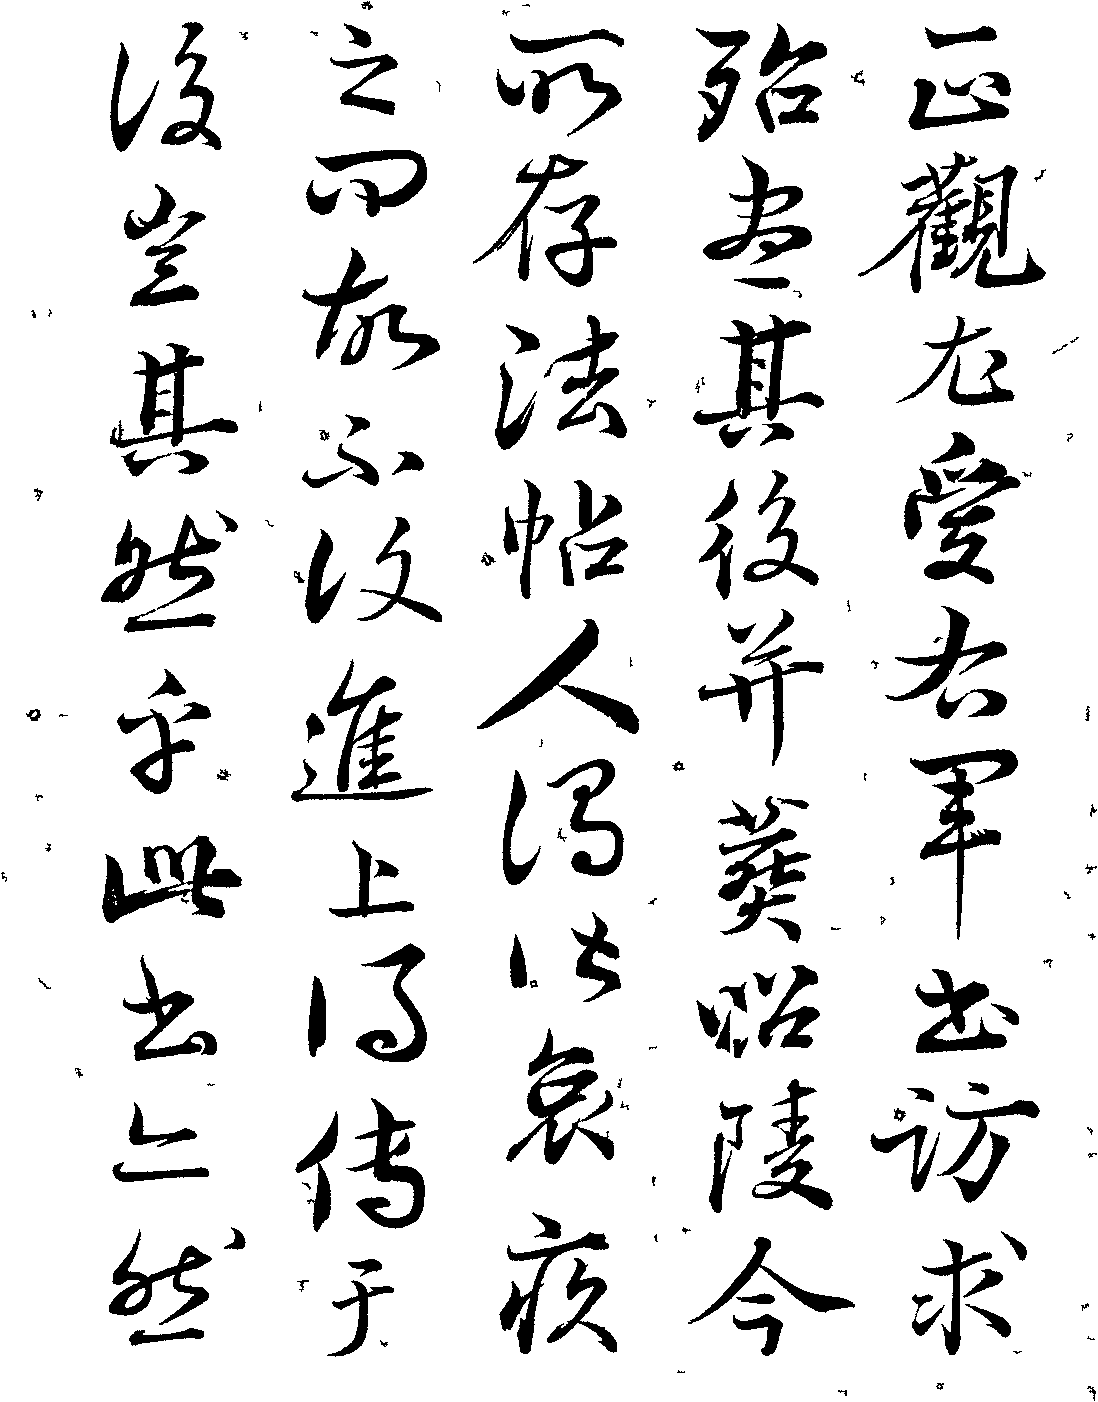 正觀尤愛右軍書訪求
殆盡其後并葬昭陵今
所存法帖人謂皆哀疾
之問故不收進上得傳于
後豈其然乎此書亦然